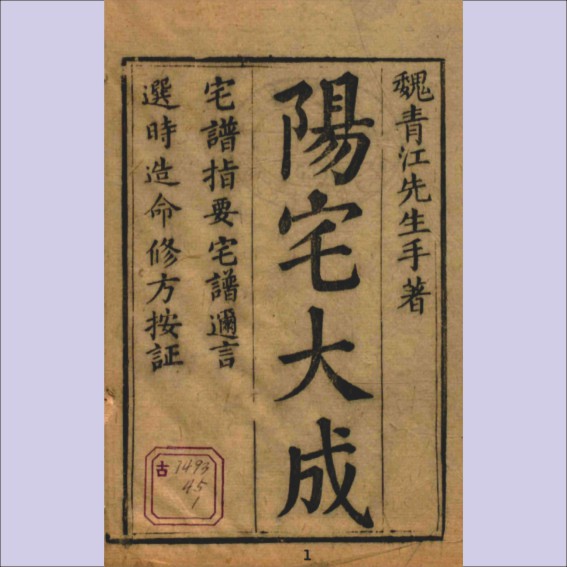 魏青江先生手著
陽宅大成
宅譜指要宅譜邇言
選時造命修方按証
古 3493
45
1
1